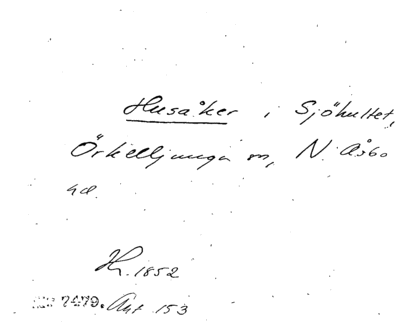 Husåker i Sjöhultet,
Örkelljunga sn, N. Åsbo
hd.
Hs. 1852
7479. Akt 153